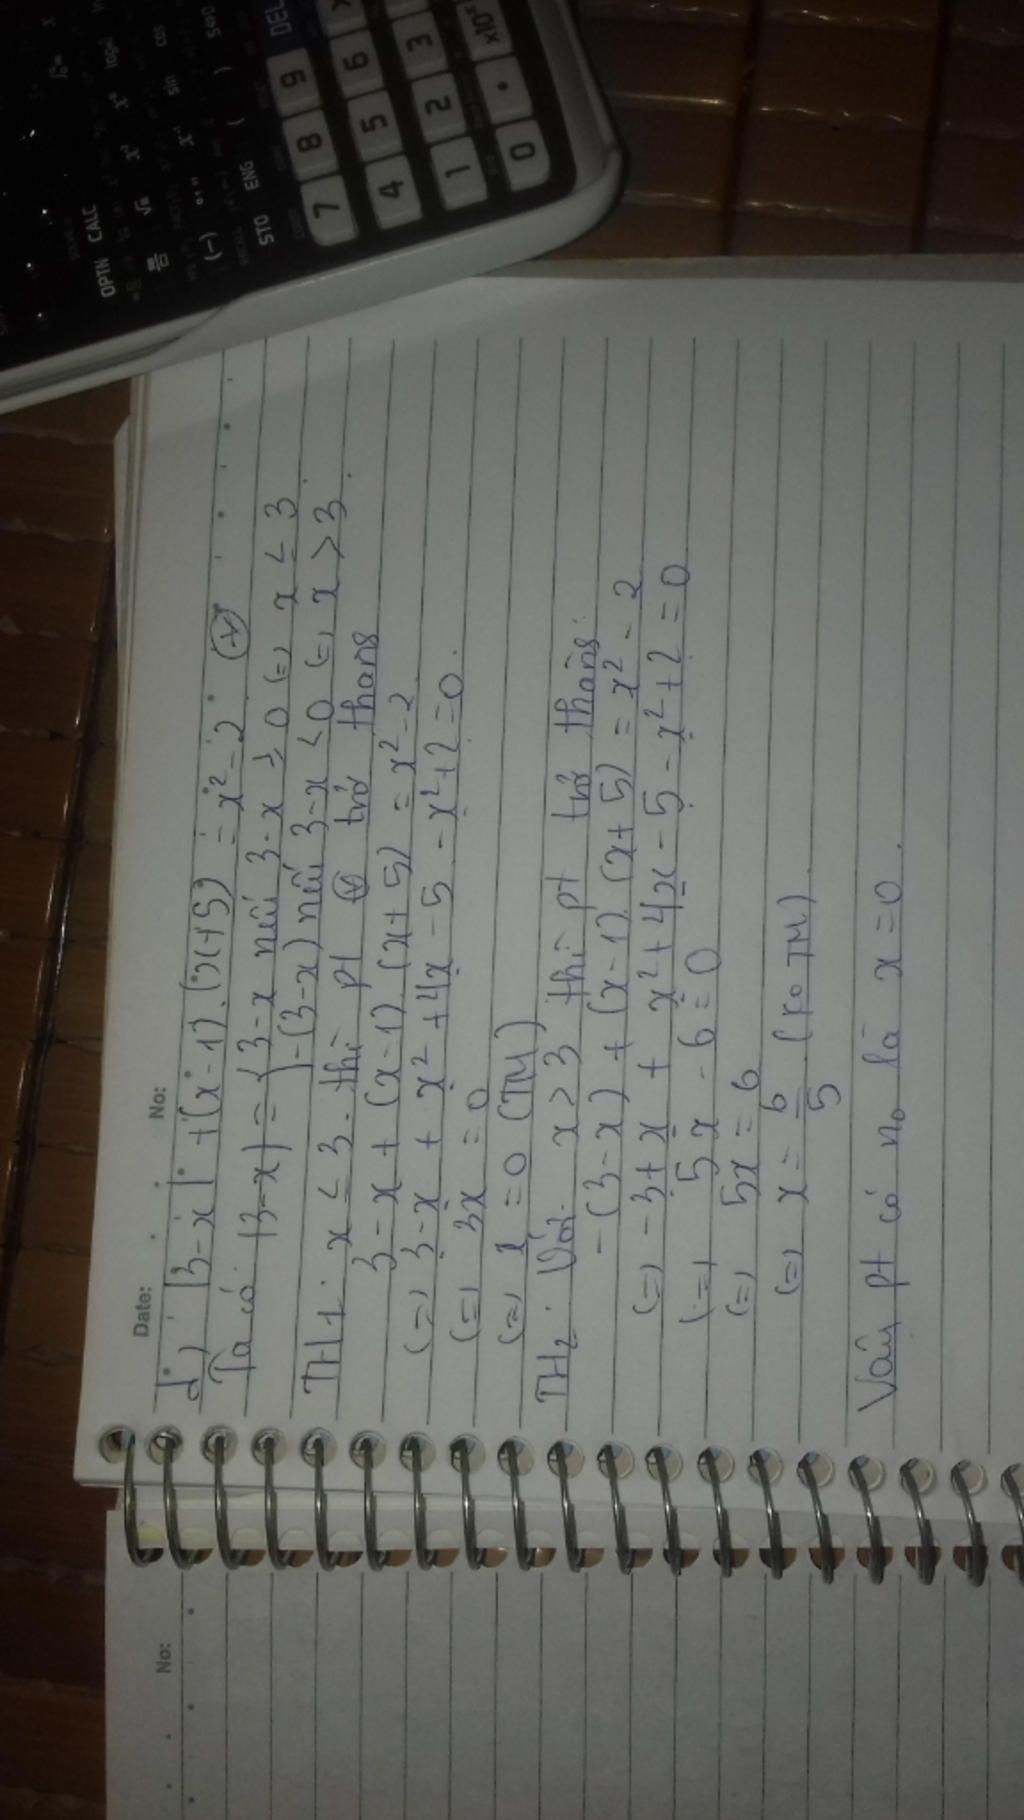 Date: No:
d) |3-x| + (x-1).(x+5) = x²-2 (*)
Ta có: |3-x| = { 3-x nếu 3-x ≥ 0 (=) x ≤ 3
-(3-x) nếu 3-x < 0 (=) x > 3.
TH1: x ≤ 3 thì pt (*) trở thành
3-x + (x-1).(x+5) = x²-2
(=) 3-x + x² + 4x - 5 - x² + 2 = 0.
(=) 3x = 0
(=) x = 0 (TM)
TH2: Với x > 3 thì pt trở thành:
-(3-x) + (x-1).(x+5) = x² - 2
(=) -3 + x + x² + 4x - 5 - x² + 2 = 0
(=) 5x - 6 = 0
(=) 5x = 6
(=) x = 6/5 (ko TM)
Vậy pt có no là x = 0.
No:
OPTN CALC
x² xⁿ log ln
(-) °'" x⁻¹ sin cos
STO ENG ( ) S⇔D
7 8 9 DEL
4 5 6 ×
1 2 3
0 . ×10ˣ